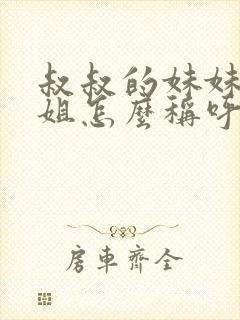 叔叔的妹妹
姐怎麼稱呼
房車齊全